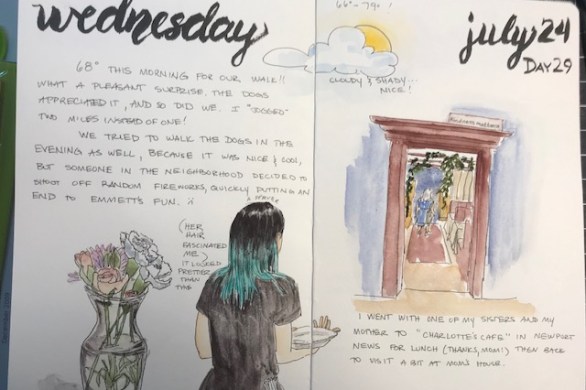 wednesday
66°-79°!
july 24
DAY 29
CLOUDY & SHADY...
NICE!
68° THIS MORNING FOR OUR WALK!!
WHAT A PLEASANT SURPRISE. THE DOGS
APPRECIATED IT, AND SO DID WE. I "JOGGED"
TWO MILES INSTEAD OF ONE!
WE TRIED TO WALK THE DOGS IN THE
EVENING AS WELL, BECAUSE IT WAS NICE & COOL,
BUT SOMEONE IN THE NEIGHBORHOOD DECIDED TO
SHOOT OFF RANDOM FIREWORKS, QUICKLY PUTTING AN
END TO EMMETT'S FUN.
(HER
HAIR
FASCINATED
ME.
IT LOOKED
PRETTIER
THAN
THIS)
I WENT WITH ONE OF MY SISTERS AND MY
MOTHER TO "CHARLOTTE'S CAFE" IN NEWPORT
NEWS FOR LUNCH (THANKS, MOM!) THEN BACK
TO VISIT A BIT AT MOM'S HOUSE.